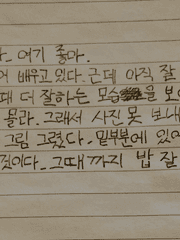 . 여기 좋아.
배우고 있다. 근데 아직 잘
때 더 잘하는 모습을 보
몰라. 그래서 사진 못 보내
그림 그렸다. 밑부분에 있어
것이다. 그때까지 밥 잘